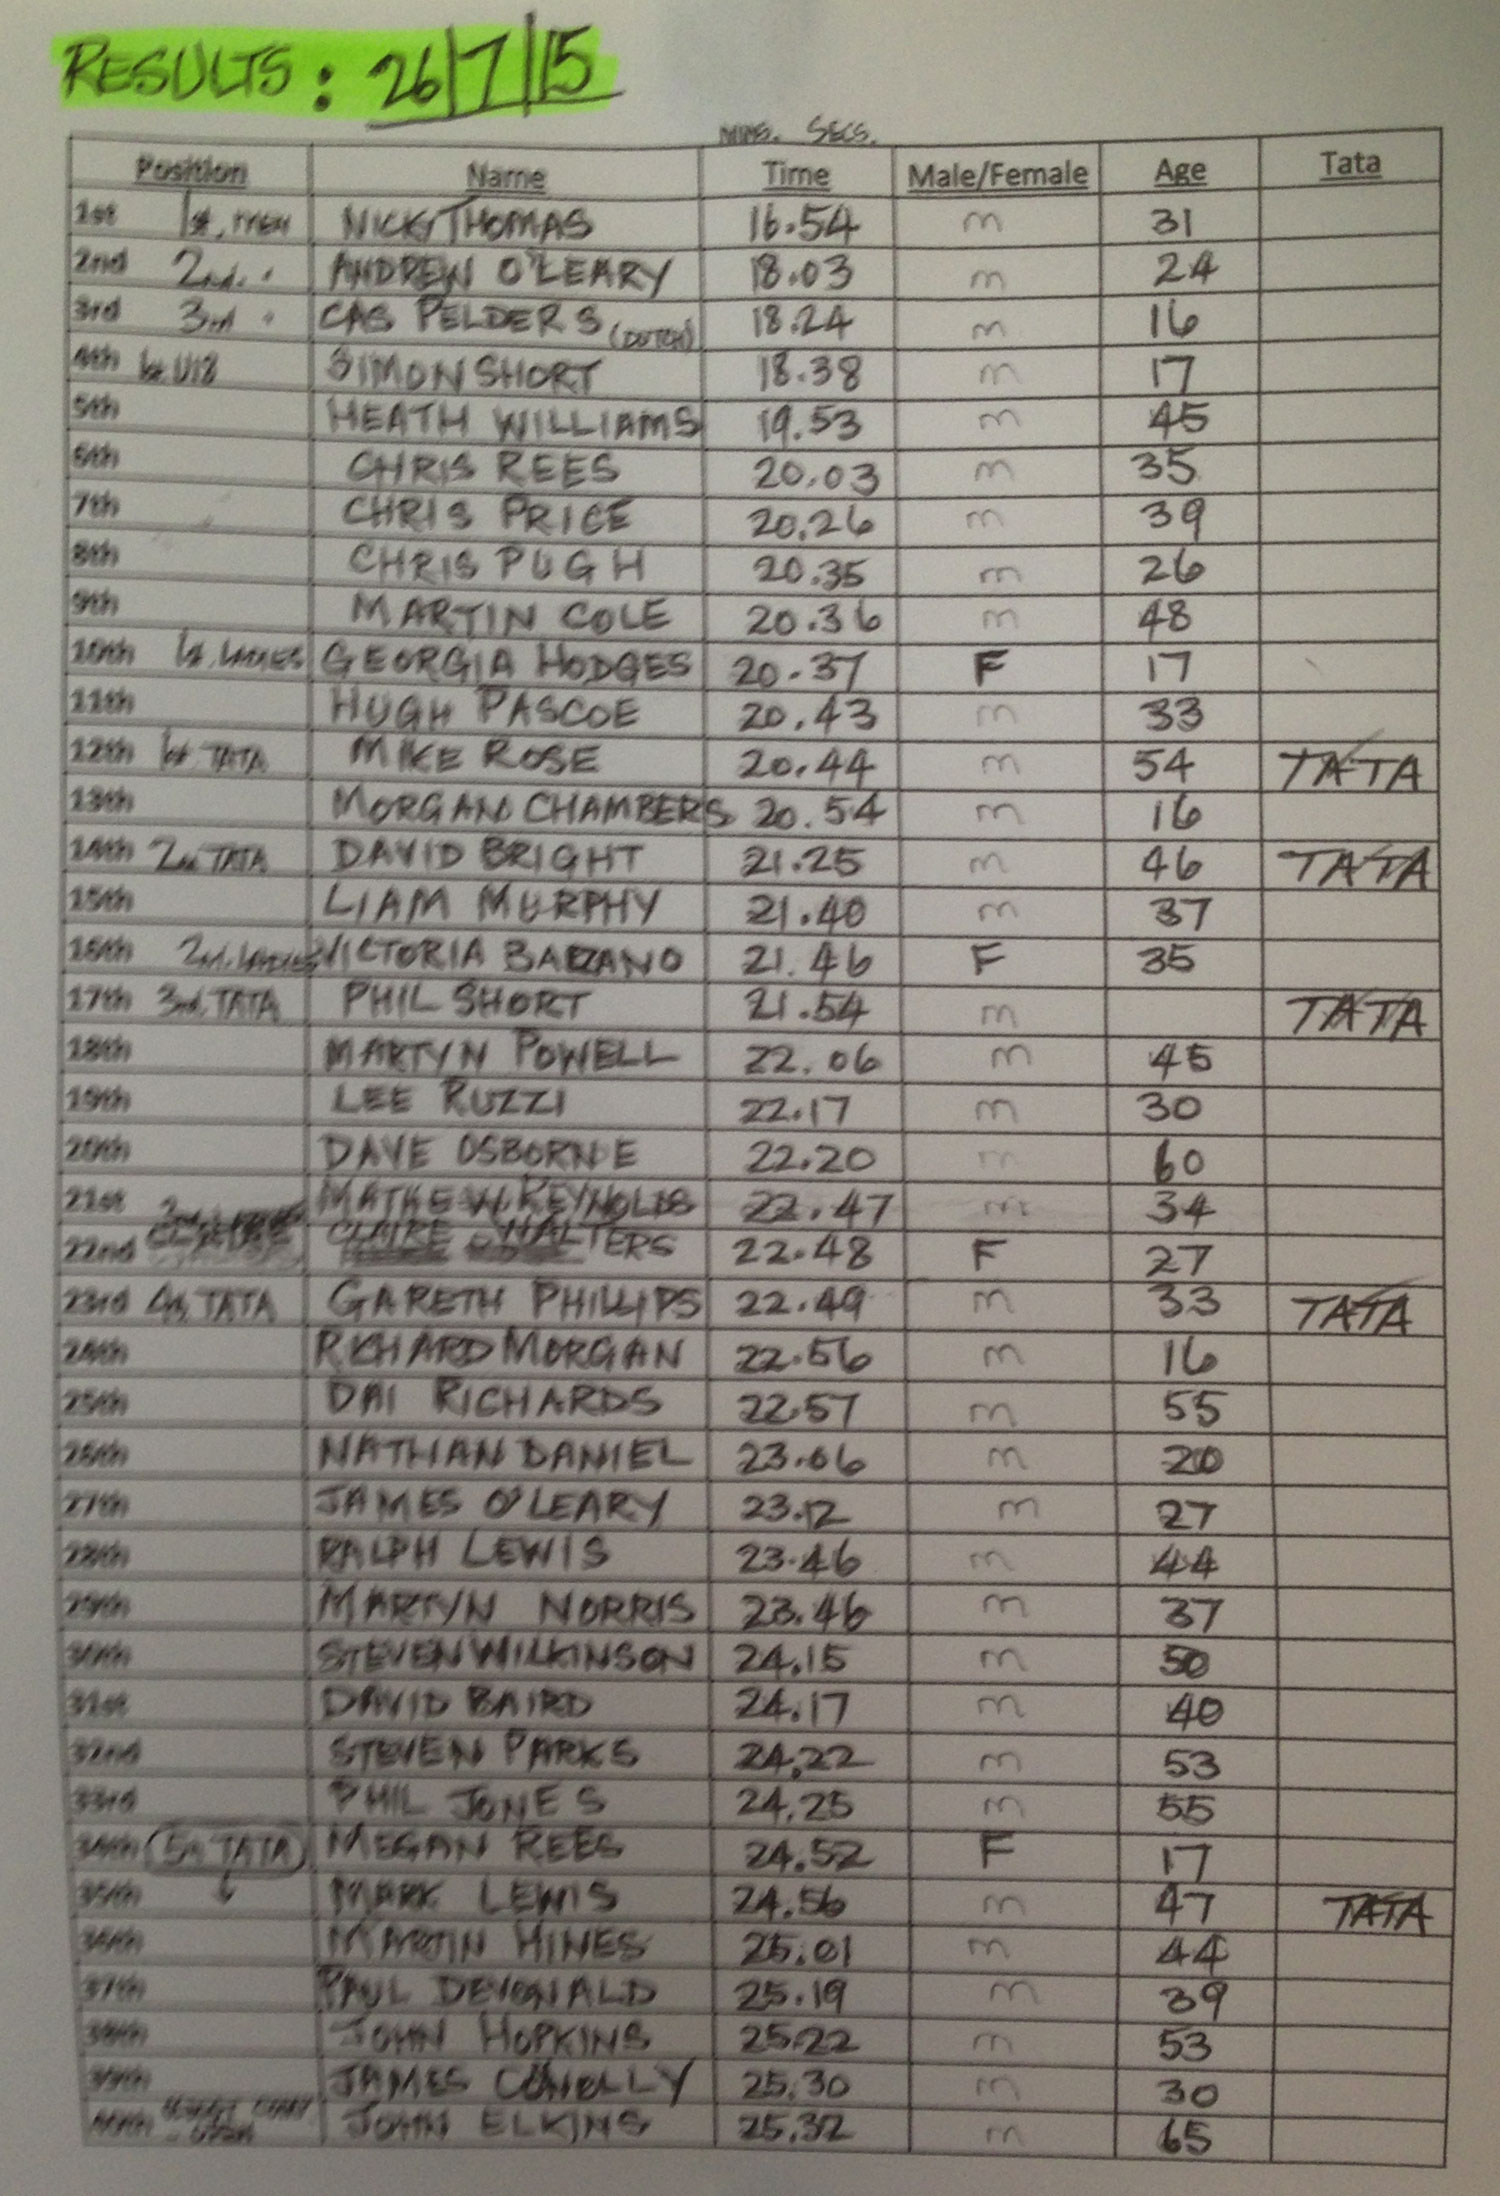 RESULTS: 26/7/15
MINS. SECS.
Position Name Time Male/Female Age Tata
1st 1st. MEN NICK THOMAS 16.54 m 31
2nd 2nd. " ANDREW O'LEARY 18.03 m 24
3rd 3rd " CAS PELDERS (DUTCH) 18.24 m 16
4th 1st U18 SIMON SHORT 18.38 m 17
5th HEATH WILLIAMS 19.53 m 45
6th CHRIS REES 20.03 m 35
7th CHRIS PRICE 20.26 m 39
8th CHRIS PUGH 20.35 m 26
9th MARTIN COLE 20.36 m 48
10th 1st. LADIES GEORGIA HODGES 20.37 F 17
11th HUGH PASCOE 20.43 m 33
12th 1st TATA MIKE ROSE 20.44 m 54 TATA
13th MORGAN CHAMBERS 20.54 m 16
14th 2nd TATA DAVID BRIGHT 21.25 m 46 TATA
15th LIAM MURPHY 21.40 m 37
16th 2nd. LADIES VICTORIA 21.46 F 35
17th 3rd. TATA PHIL SHORT 21.54 m TATA
18th MARTYN POWELL 22.06 m 45
19th LEE RUZZI 22.17 m 30
20th DAVE OSBORNE 22.20 m 60
21st MATHEW REYNOLDS 22.47 m 34
22nd CLAIRE WALTERS 22.48 F 27
23rd 4th TATA GARETH PHILLIPS 22.49 m 33 TATA
24th RICHARD MORGAN 22.56 m 16
25th DAI RICHARDS 22.57 m 55
26th NATHAN DANIEL 23.06 m 20
27th JAMES O'LEARY 23.12 m 27
28th RALPH LEWIS 23.46 m 44
29th MARTYN NORRIS 23.46 m 37
30th STEVEN WILKINSON 24.15 m 50
31st DAVID BAIRD 24.17 m 40
32nd STEVEN PARKS 24.22 m 53
33rd PHIL JONES 24.25 m 55
34th 5th TATA MEGAN REES 24.52 F 17
35th MARK LEWIS 24.56 m 47 TATA
36th MARTIN HINES 25.01 m 44
37th PAUL DEVONALD 25.19 m 39
38th JOHN HOPKINS 25.22 m 53
39th JAMES CONOLLY 25.30 m 30
40th JOHN ELKINS 25.32 m 65